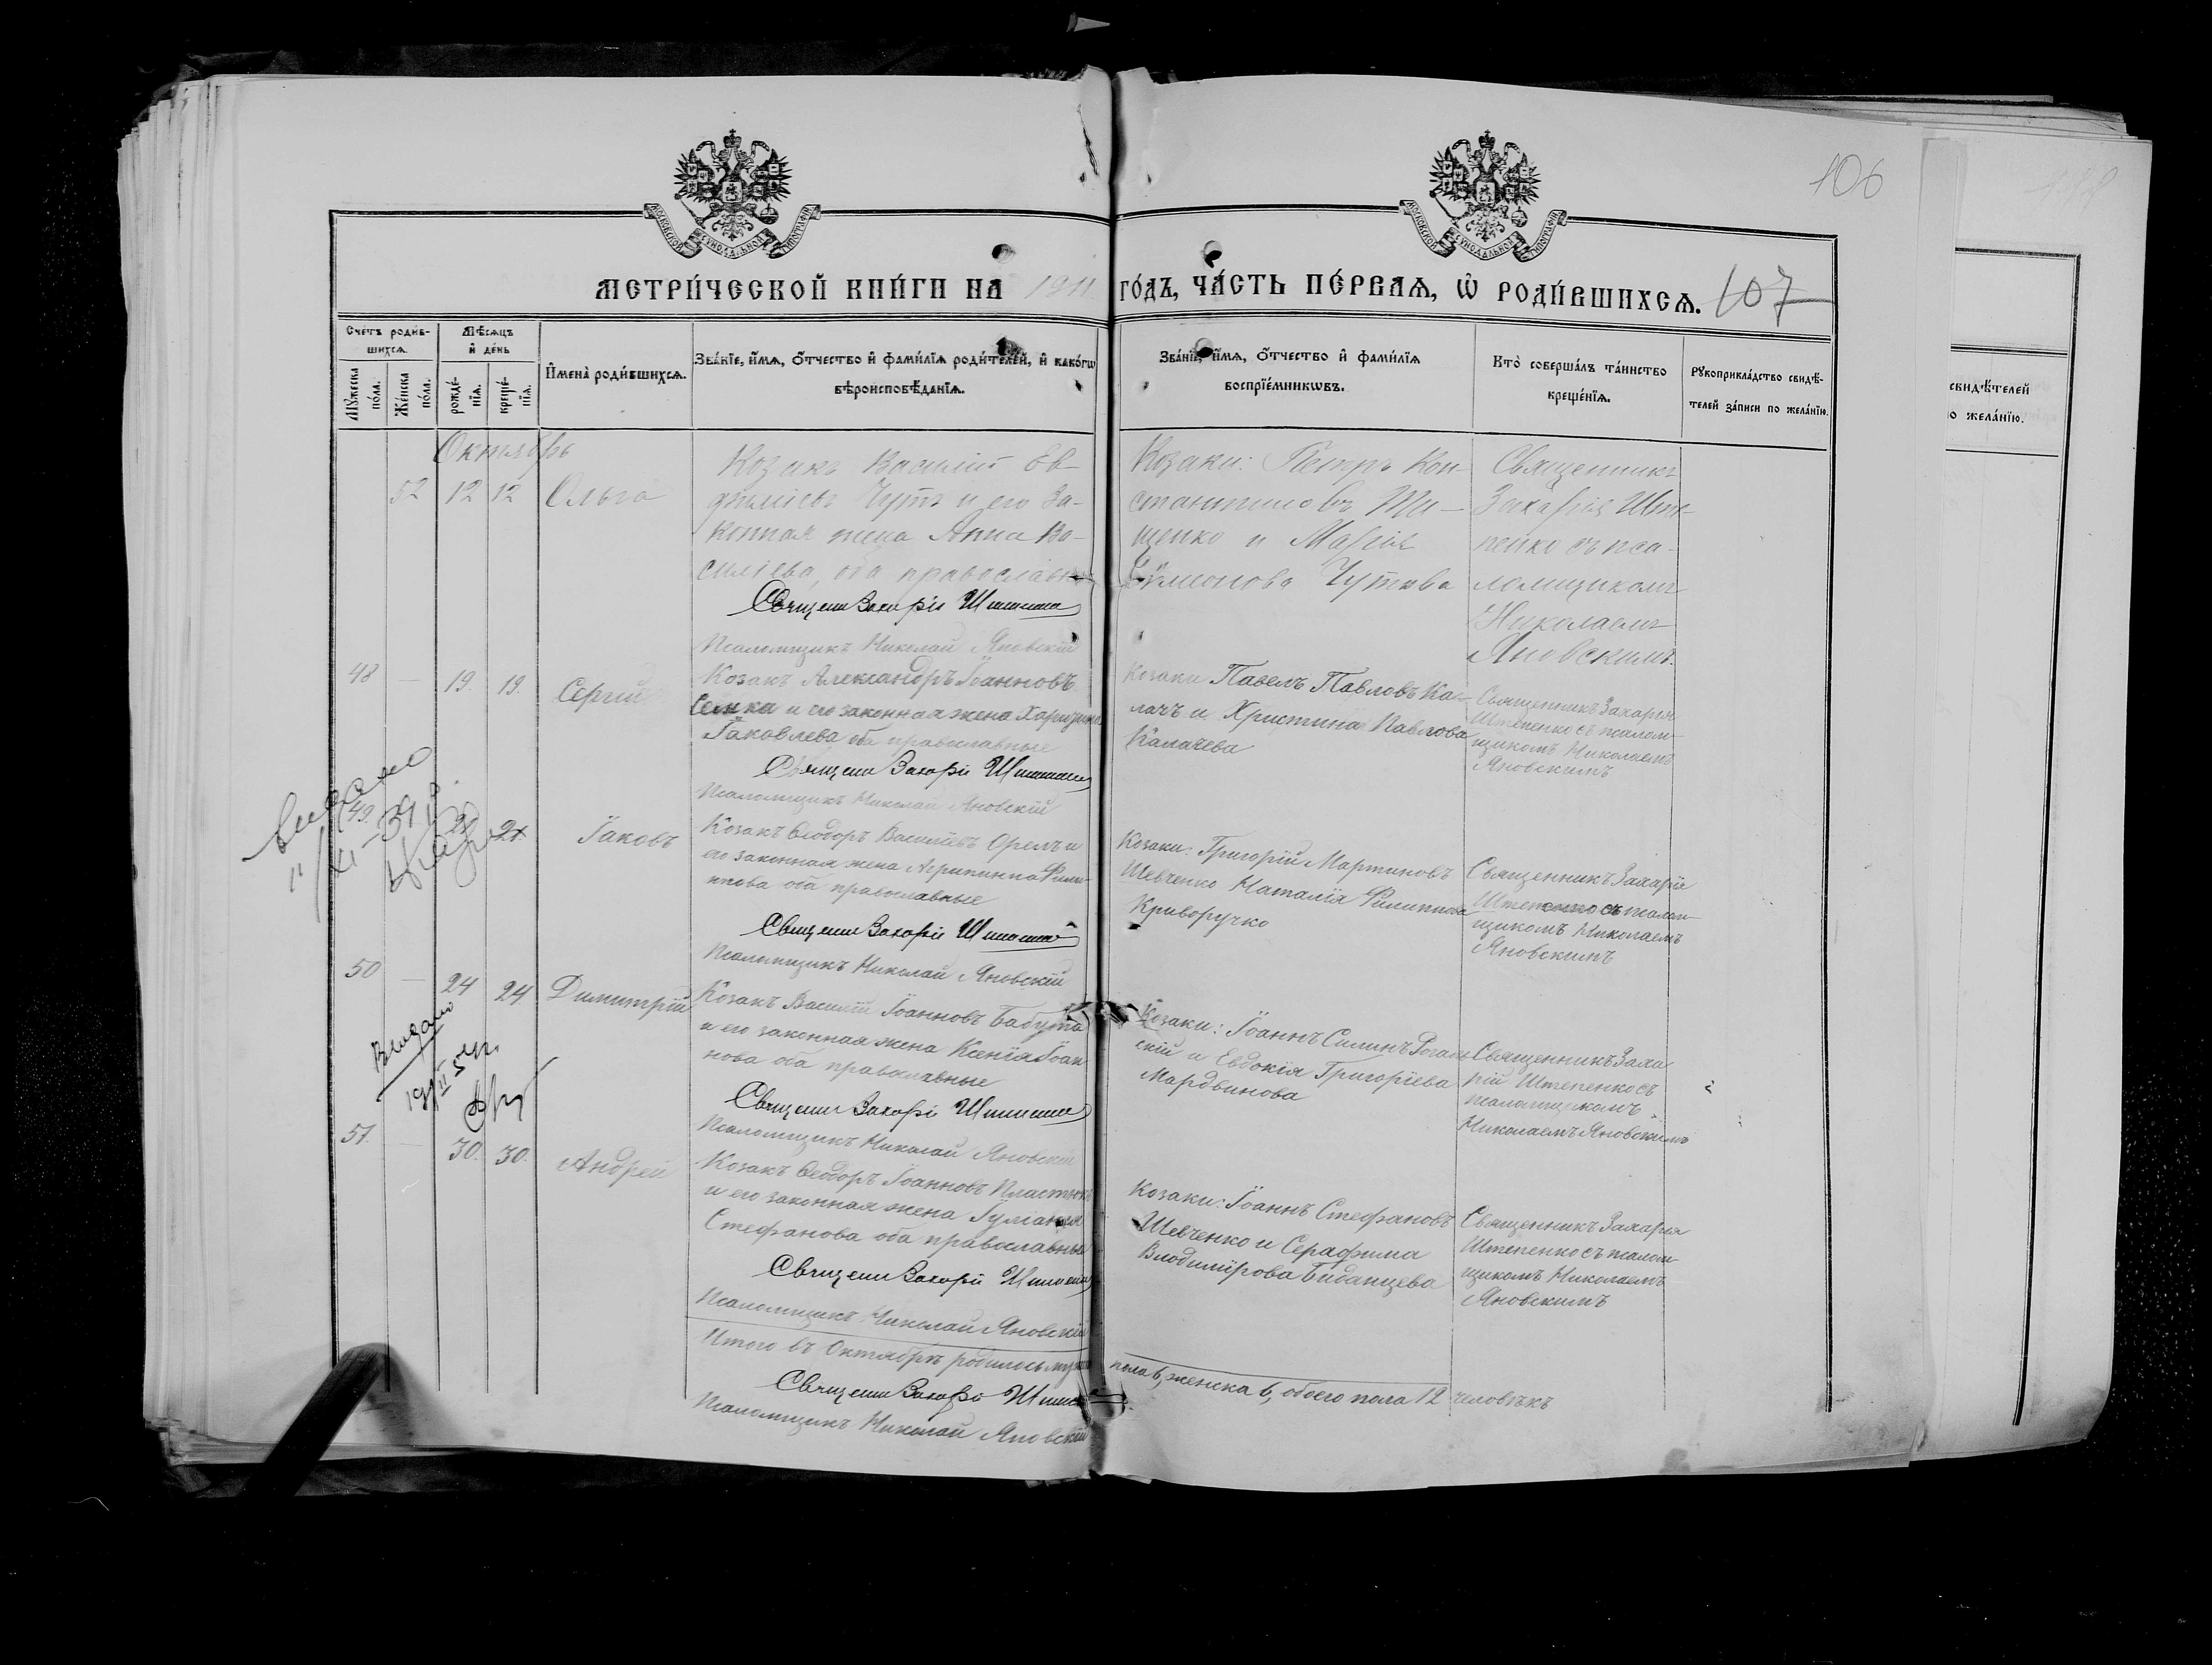 106
МОСКОВСКОЙ СѴНОДАЛЬНОЙ ТИПОГРАФІИ
МОСКОВСКОЙ СѴНОДАЛЬНОЙ ТИПОГРАФІИ
МЕТРИ́ЧЕСКОЙ КНИ́ГИ НА 1911 ГО́ДЪ, ЧА́СТЬ ПЕ́РВАЯ, Ѡ҆ РОДИ́ВШИХСЯ. 107
Сче́тъ роди́в-
шихся.
Мꙋ́жеска по́ла.
Же́нска по́ла.
Мѣ́сяцъ и҆ де́нь
рожде́-
нїя.
креще́-
нїя.
И҆мена̀ роди́вшихся.
Зва́нїе, и҆́мя, ѻ҆́тчество и҆ фами́лїя роди́телей, и҆ како́гѡ
вѣроисповѣ́данїя.
Зва́нїе, и҆́мя, ѻ҆́тчество и҆ фами́лїя
воспрїе́мникѡвъ.
Кто̀ соверша́лъ та́инство
креще́нїя.
Рꙋкоприкла́дство свидѣ́-
телей за́писи по жела́нїю.
свидѣ́телей
о жела́нїю.
Октябрь
52 12 12 Ольга
Козакъ Василій Ев-
Чутъ и его за-
конная жена Анна Ва-
силіева, оба православн
Священ Захарій
Псаломщикъ Николай Яновскій
Козаки: Петръ Кон-
стантиновъ Ти-
щенко и Марія
Чутова
Священникъ
ЗахаріяШте-
пенко съ пса-
ломщикомъ
Николаемъ
Яновскимъ.
48 — 19. 19. Сергій
Козакъ Александръ Іоанновъ
Семка и его законная жена
Іаковлева оба православные
Священ Захарій
Псаломщикъ Николай Яновскій
Козаки Павелъ Павловъ Ка-
лачъ и Христина Павлова
Калачева
Священникъ Захарія
Штепенко съ псалом-
щикомъ Николаемъ
Яновскимъ
Видано
11/XI-39 р.
49. 21 21. Іаковъ
Козакъ Ѳеодоръ Василіевъ Орелъ и
его законная жена Агрипинна Фили-
ппова оба православные
Священ Захарій
Псаломщикъ Николай Яновскій
Козаки: Григорій Мартиновъ
Шевченко Наталія Филиппова
Криворучко
Священникъ Захарія
Штепенко съ псалом-
щикомъ Николаемъ
Яновскимъ
50 — 24 24 Димитрій
Козакъ Василій Іоанновъ Бабута
и его законная жена Ксенія Іоан
нова оба православные
Священ Захарій
Псаломщикъ Николай Яновскій
Козаки: Іоаннъ Силинъ
скій и Евдокія Григоріева
Мардвинова
Священникъ Заха
рій Штепенко съ
псаломщикомъ
Николаемъ Яновскимъ
Видано
51. — 30. 30. Андрей
Козакъ Ѳеодоръ Іоанновъ
и его законная жена Іуліанія
Стефанова оба православные
Священ Захарій
Псаломщикъ Николай Яновскій
Козаки: Іоаннъ Стефановъ
Шевченко и Серафима
Владимірова
Священникъ Захарія
Штепенко съ псалом-
щикомъ Николаемъ
Яновскимъ
Итого въ Октябрѣ родилось муж пола 6, женска 6, обоего пола 12 человѣкъ
Священ Захарій
Псаломщикъ Николай Яновскій